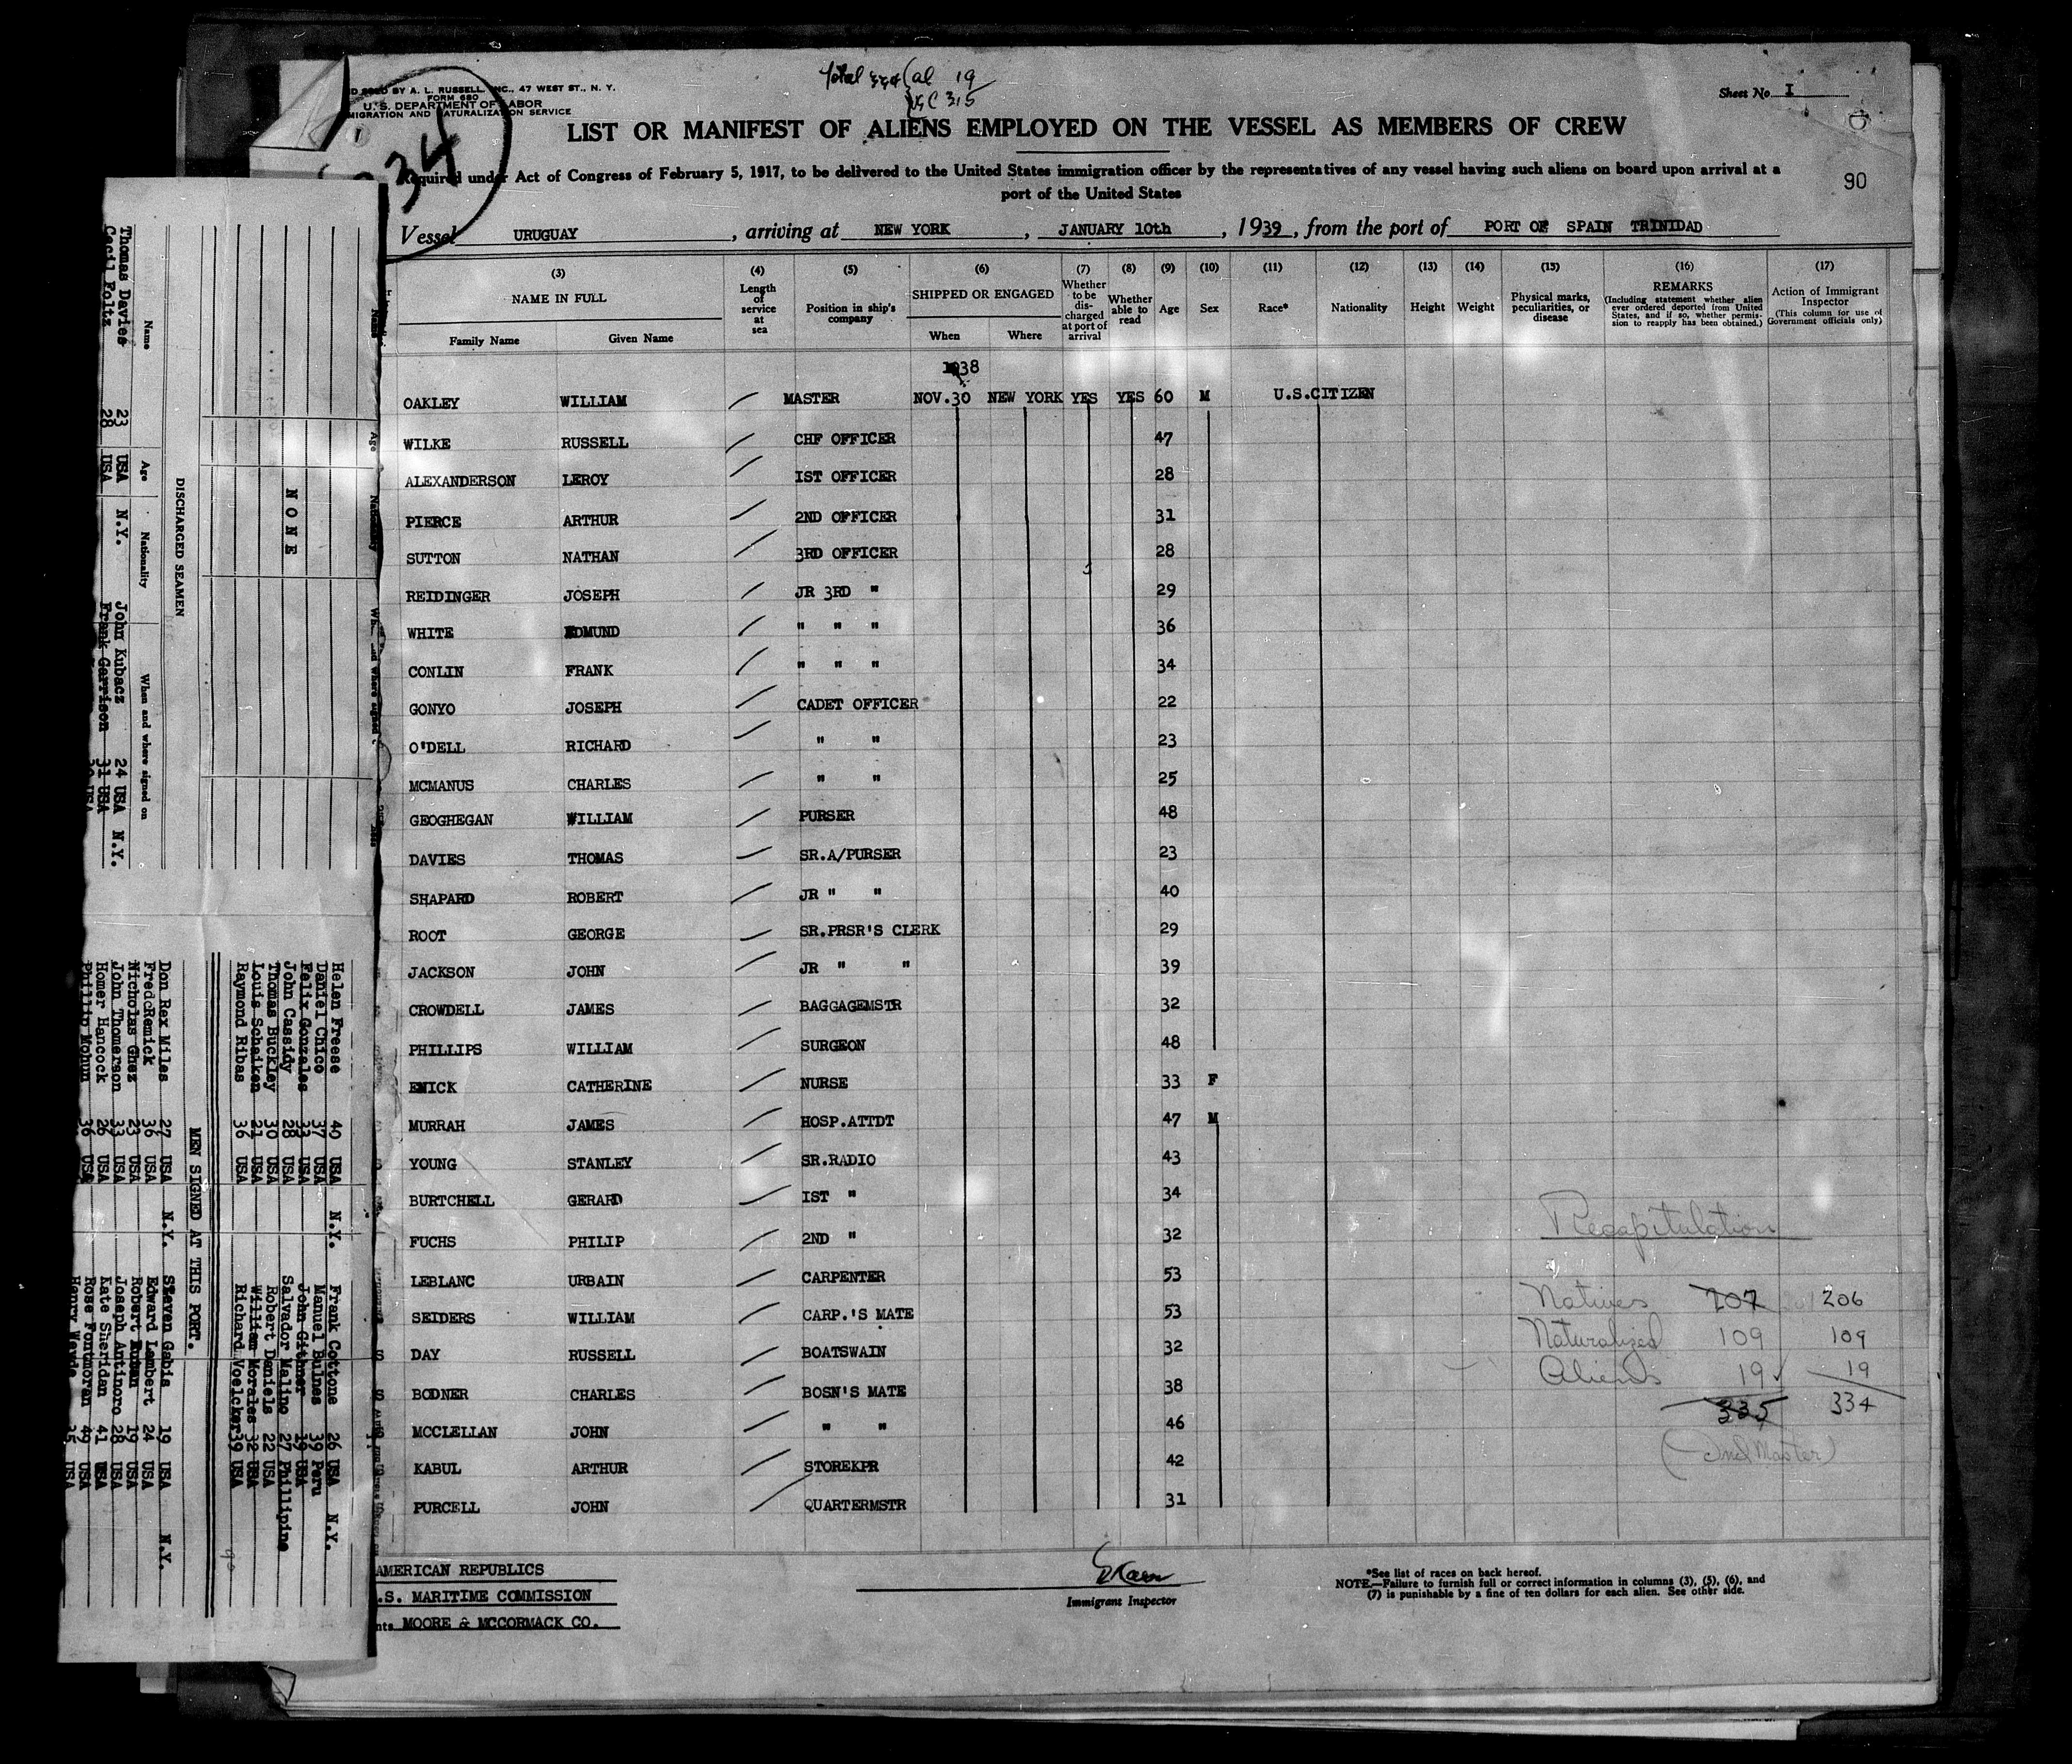 Total 334 { al 19
USC 315
INC., 47 WEST ST., N. Y.
FORM 680
U. S. DEPARTMENT OF LABOR
MIGRATION AND NATURALIZATION SERVICE
Sheet No. I
34
LIST OR MANIFEST OF ALIENS EMPLOYED ON THE VESSEL AS MEMBERS OF CREW
Required under Act of Congress of February 5, 1917, to be delivered to the United States immigration officer by the representatives of any vessel having such aliens on board upon arrival at a
port of the United States
90
Vessel URUGUAY, arriving at NEW YORK, JANUARY 10th, 1939, from the port of PORT OF SPAIN TRINIDAD
(3) (4) (5) (6) (7) (8) (9) (10) (11) (12) (13) (14) (15) (16) (17)
NAME IN FULL
Family Name Given Name
Length of service at sea
Position in ship's company
SHIPPED OR ENGAGED
When Where
Whether to be discharged at port of arrival
Whether able to read
Age
Sex
Race*
Nationality
Height
Weight
Physical marks, peculiarities, or disease
REMARKS
(Including statement whether alien ever ordered deported from United States, and if so, whether permission to reapply has been obtained.)
Action of Immigrant Inspector
(This column for use of Government officials only)
1938
OAKLEY WILLIAM MASTER NOV.30 NEW YORK YES YES 60 M U.S.CITIZEN
WILKE RUSSELL CHF OFFICER 47
ALEXANDERSON LEROY IST OFFICER 28
PIERCE ARTHUR 2ND OFFICER 31
SUTTON NATHAN 3RD OFFICER 28
REIDINGER JOSEPH JR 3RD " 29
WHITE EDMUND " " " 36
CONLIN FRANK " " " 34
GONYO JOSEPH CADET OFFICER 22
O'DELL RICHARD " " 23
MCMANUS CHARLES " " 25
GEOGHEGAN WILLIAM PURSER 48
DAVIES THOMAS SR.A/PURSER 23
SHAPARD ROBERT JR " " 40
ROOT GEORGE SR.PRSR'S CLERK 29
JACKSON JOHN JR " " 39
CROWDELL JAMES BAGGAGEMSTR 32
PHILLIPS WILLIAM SURGEON 48
EMICK CATHERINE NURSE 33 F
MURRAH JAMES HOSP.ATTDT 47 M
YOUNG STANLEY SR.RADIO 43
BURTCHELL GERARD IST " 34
FUCHS PHILIP 2ND " 32
LEBLANC URBAIN CARPENTER 53
SEIDERS WILLIAM CARP.'S MATE 53
DAY RUSSELL BOATSWAIN 32
BODNER CHARLES BOSN'S MATE 38
MCCLELLAN JOHN " " 46
KABUL ARTHUR STOREKPR 42
PURCELL JOHN QUARTERMSTR 31
Recapitulation
Natives 207 206
Naturalized 109 109
Aliens 19 19
335 334
(Incl Master)
AMERICAN REPUBLICS
.S. MARITIME COMMISSION
nts MOORE & MCCORMACK CO.
Immigrant Inspector
*See list of races on back hereof.
NOTE.—Failure to furnish full or correct information in columns (3), (5), (6), and
(7) is punishable by a fine of ten dollars for each alien. See other side.
NONE
DISCHARGED SEAMEN
Name Age Nationality When and where signed on
Thomas Davies 23 USA N.Y. John Kubacz 24 USA N.Y.
Cecil Foltz 28 USA Frank Garrison 31 USA
Helen Freese 40 USA N.Y. Frank Cottone 26 USA N.Y.
Daniel Chico 37 USA Manuel Bulnes 39 Peru
Felix Gonzales 33 USA John Githner 19 USA
John Cassidy 28 USA Salvador Malino 27 Phillipine
Thomas Buckley 30 USA Robert Daniels 22 USA
Louis Schaiken 21 USA William Morales 32 USA
Raymond Ribas 36 USA Richard Voelcker 39 USA
MEN SIGNED AT THIS PORT.
Don Rex Miles 27 USA N.Y. Steven Gabis 19 USA N.Y.
Fred Remick 36 USA Edward Lambert 24 USA
Nicholas Ghez 23 USA Robert 19 USA
John Thomerson 33 USA Joseph Antinoro 28 USA
Homer Hancock 26 USA Kate Sheridan 41 USA
Phillip Mohun 36 USA Rose Fontmoran 49 USA